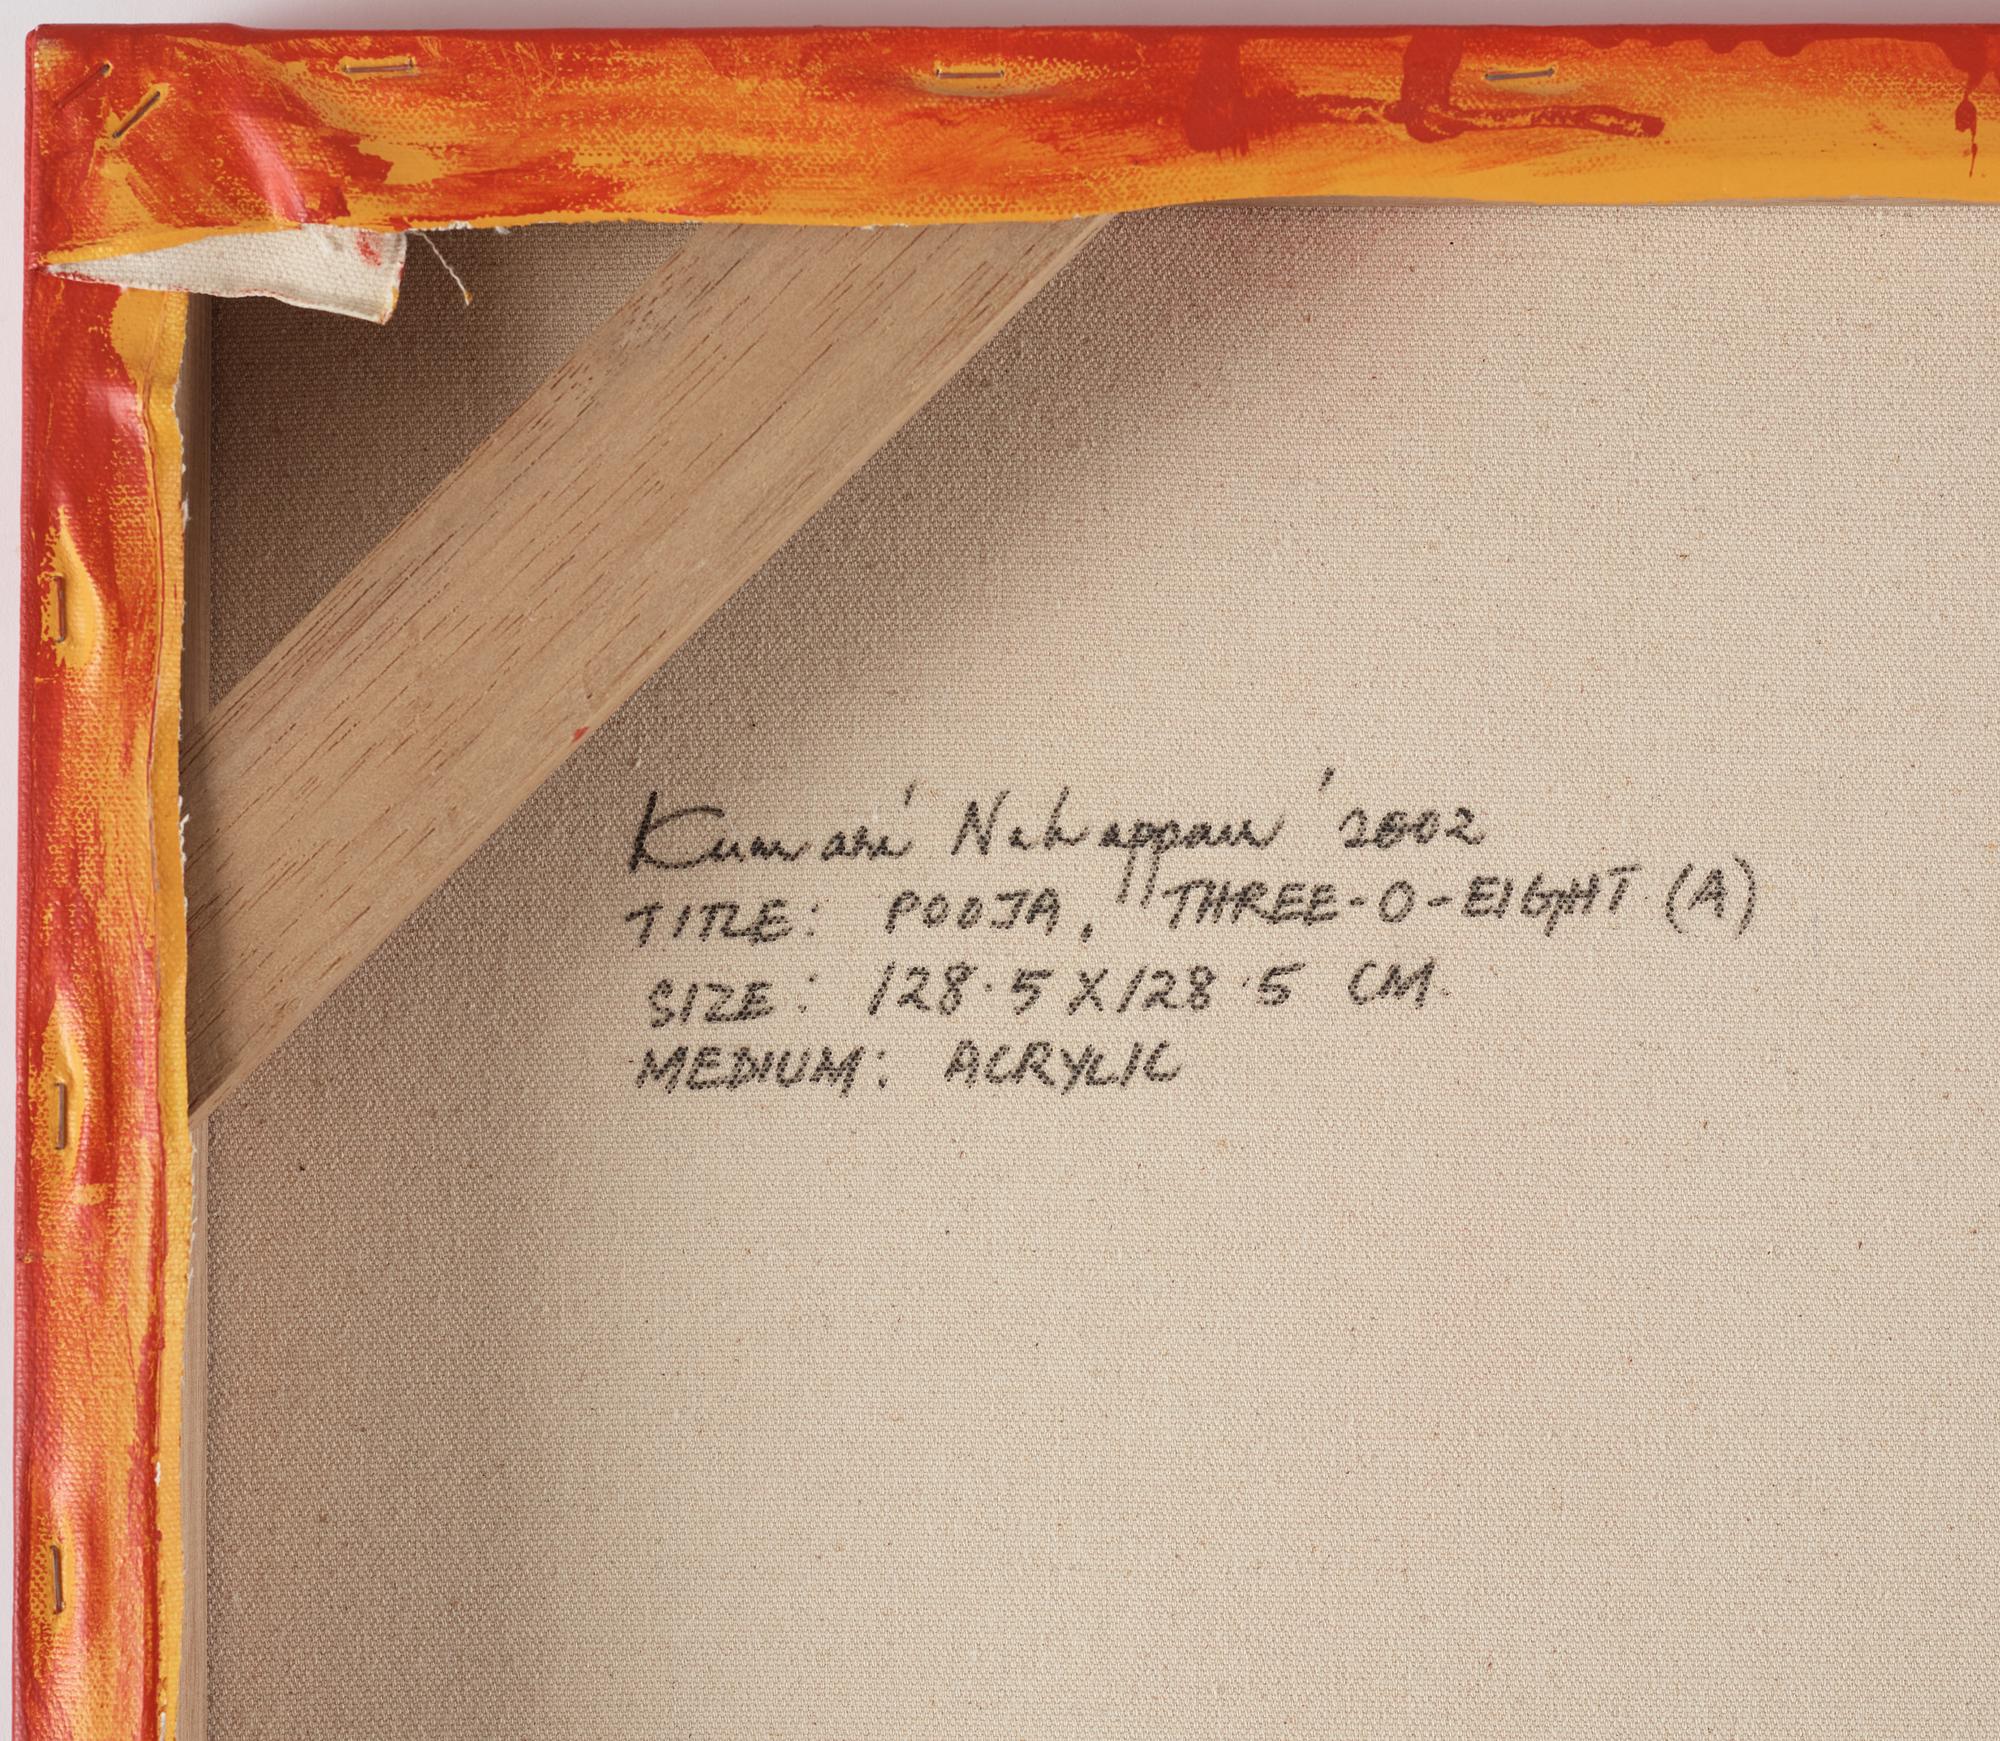 Kumari Nahappan '2002
TITLE: POOJA, THREE-O-EIGHT (A)
SIZE: 128.5 X 128.5 CM.
MEDIUM: ACRYLIC